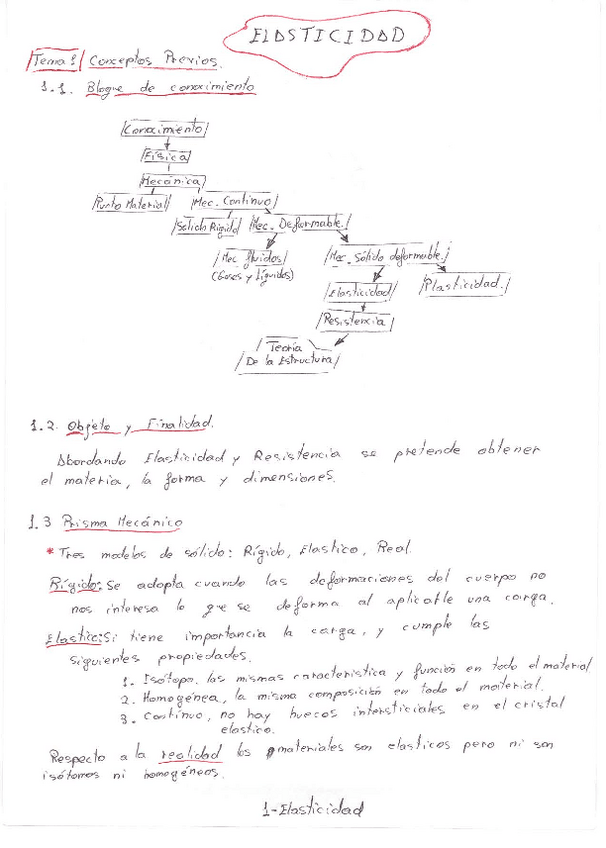 ELASTICIDAD
Tema 1 Conceptos Previos.
1.1. Bloque de conocimiento
Conocimiento
Física
Mecánica
Punto Material Mec. Continuo
Sólido Rígido Mec. Deformable.
Mec. fluidos Mec. Sólido deformable.
(Gases y Líquidos)
Elasticidad Plasticidad.
Resistencia
Teoría
De la Estructura
1.2. Objeto y Finalidad.
Abordando Elasticidad y Resistencia se pretende obtener
el materia, la forma y dimensiones.
1.3 Prisma Mecánico
* Tres modelos de sólido: Rígido, Elastico, Real.
Rígido: Se adopta cuando las deformaciones del cuerpo no
nos interesa lo que se deforma al aplicarle una carga.
Elastic: Si tiene importancia la carga, y cumple las
siguientes propiedades.
1. Isótopo, las mismas caracteristica y función en todo el material.
2. Homogénea, la misma composición en todo el material.
3. Continuo, no hay huecos intersticiales en el cristal
elastico.
Respecto a la realidad los materiales son elasticos pero ni son
isótomos ni homogéneos.
1-Elasticidad